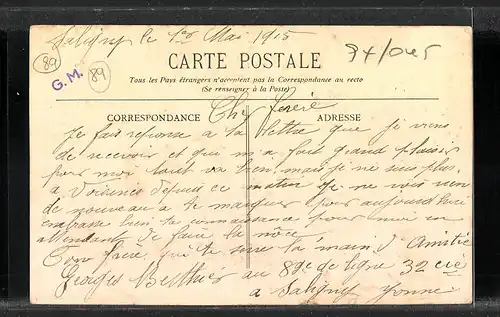 Saligny le 1er Mai 1915
CARTE POSTALE
Tous les Pays étrangers n'acceptent pas la Correspondance au recto
(Se renseigner à la Poste)
89
G. M.
89
CORRESPONDANCE
ADRESSE
Cher Frère
Je fait reponse a ta lettre que je viens
de recevoir et qui m'a fait grand plaisir
pour moi tout va bien mais je ne suis plus
a Voisines depuis ce matin je ne vois rien
de nouveau a te marquer pour aujourd'hui
embrasse bien ta connaissance pour moi en
attendant de faire la nôce
Ton frère qui te serre la main d'Amitié
Georges Berthier au 89e de ligne 32 cie
a Saligny Yonne